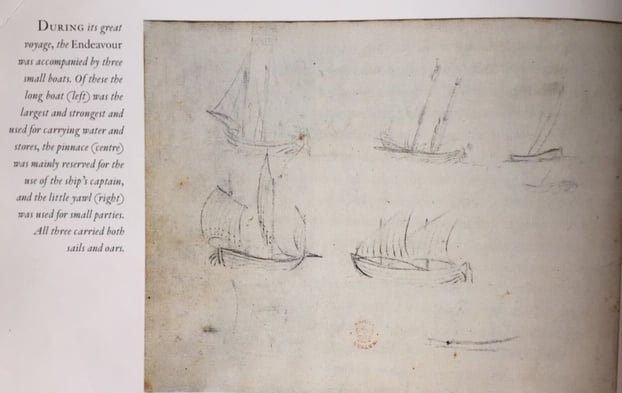 DURING its great
voyage, the Endeavour
was accompanied by three
small boats. Of these the
long boat (left) was the
largest and strongest and
used for carrying water and
stores, the pinnace (centre)
was mainly reserved for the
use of the ship's captain,
and the little yawl (right)
was used for small parties.
All three carried both
sails and oars.